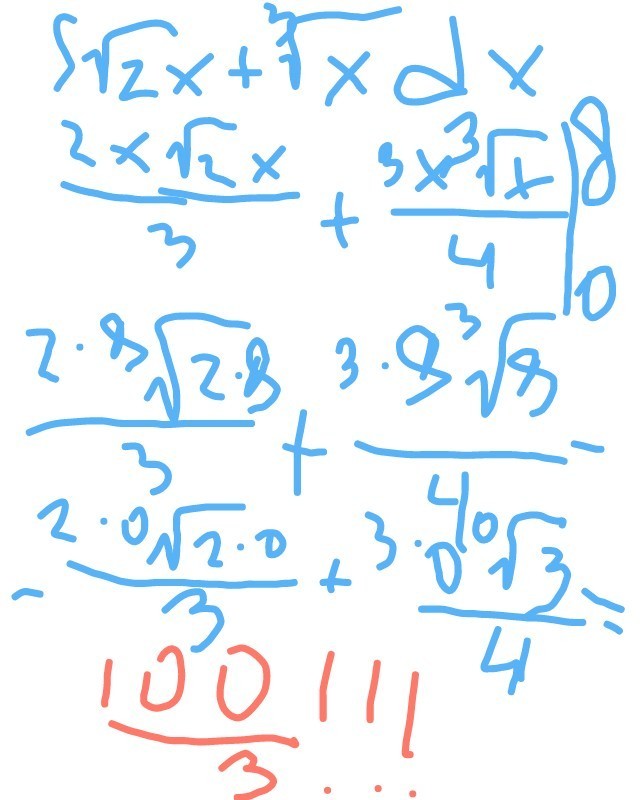 ∫√2x + ³√x dx
2x√2x/3 + 3x³√x/4 |⁸₀
2·8√2·8/3 + 3·8³√8/4 -
- 2·0√2·0/3 + 3·0⁰√3/4 =
100/3 !!!